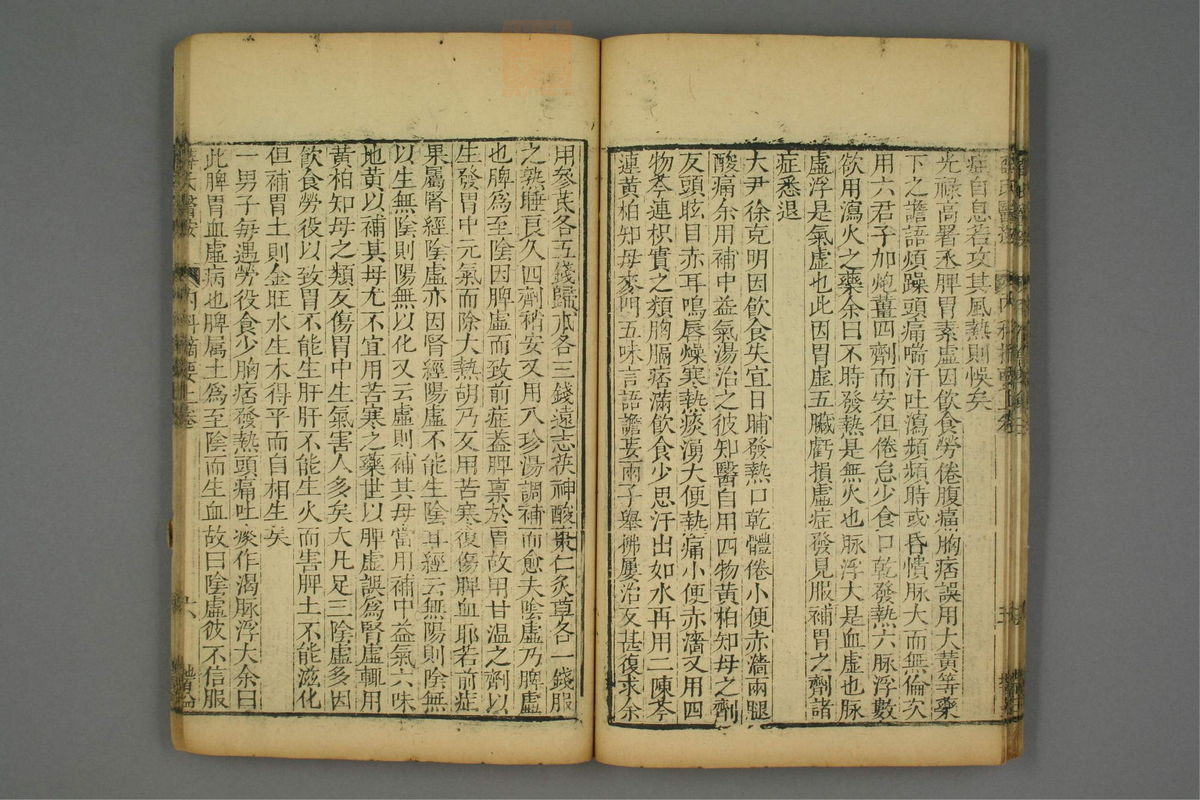 症自息若攻其風熱則悞矣
光祿高署丞脾胃素虛因飲食勞倦腹痛胸痞誤用大黃等藥
下之譫語煩躁頭痛喘汗吐瀉頻頻時或昏憒脉大而無倫次
用六君子加炮薑四劑而安但倦怠少食口乾發熱六脉浮數
欲用瀉火之藥余曰不時發熱是無火也脉浮大是血虛也脉
虛浮是氣虛也此因胃虛五臟虧損虛症發見服補胃之劑諸
症悉退
大尹徐克明因飲食失宜日晡發熱口乾體倦小便赤澁兩腿
酸痛余用補中益氣湯治之彼知醫自用四物黃柏知母之劑
反頭眩目赤耳鳴唇燥寒熱痰湧大便熱痛小便赤澁又用四
物芩連枳實之類胸膈痞滿飲食少思汗出如水再用二陳芩
連黃柏知母麥門五味言語譫妄兩手舉拂屢治反甚復求余
用參芪各五錢歸朮各三錢遠志茯神酸棗仁炙草各一錢服
之熟睡良久四劑稍安又用八珍湯調補而愈夫陰虛乃脾虛
也脾爲至陰因脾虛而致前症葢脾稟於胃故用甘溫之劑以
生發胃中元氣而除大熱胡乃又用苦寒復傷脾血耶若前症
果屬腎經陰虛亦因腎經陽虛不能生陰耳經云無陽則陰無
以生無陰則陽無以化又云虛則補其母當用補中益氣六味
地黃以補其母尤不宜用苦寒之藥世以脾虛誤爲腎虛輒用
黃柏知母之類反傷胃中生氣害人多矣大凡足三陰虛多因
飲食勞役以致胃不能生肝肝不能生火而害脾土不能滋化
但補胃土則金旺水生木得平而自相生矣
一男子每遇勞役食少胸痞發熱頭痛吐痰作渴脉浮大余曰
此脾胃血虛病也脾屬土爲至陰而生血故曰陰虛彼不信服
薛氏醫按 內科摘要上卷 十六